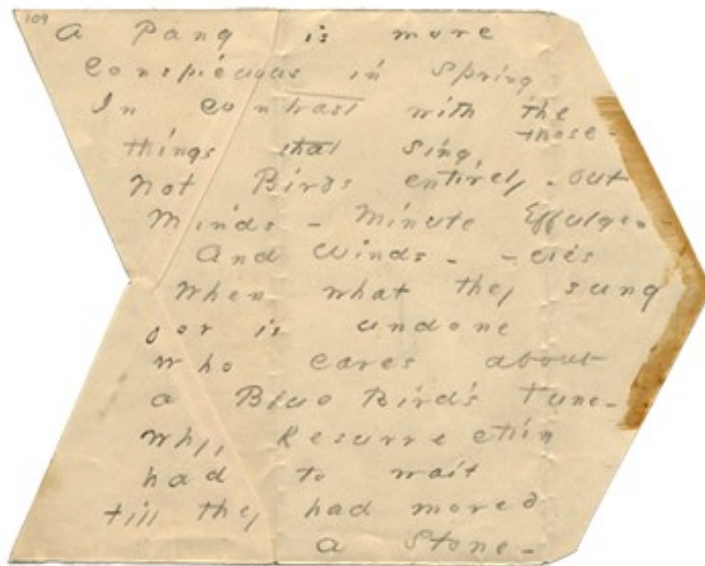 109
A Pang is more
Conspicuous in Spring
In contrast with the
those -
things that sing
Not Birds entirely - but
Minds - Minute Effulgen-
And Winds - - cies
When what they sung
for is undone
Who cares about
a Blue Bird's Tune -
Why, Resurrection
had to wait
till they had moved
a Stone -